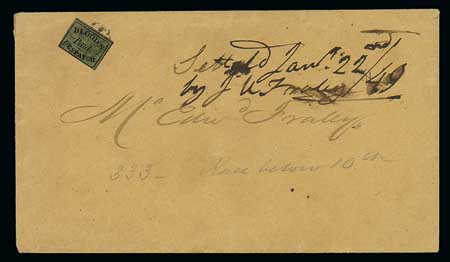 BLOOD'S
Paid
DESPATCH
Settled Jan.y 22nd/49
by J. W. Fraley
Mr. Edwd. Fraley
333 - Race below 10th